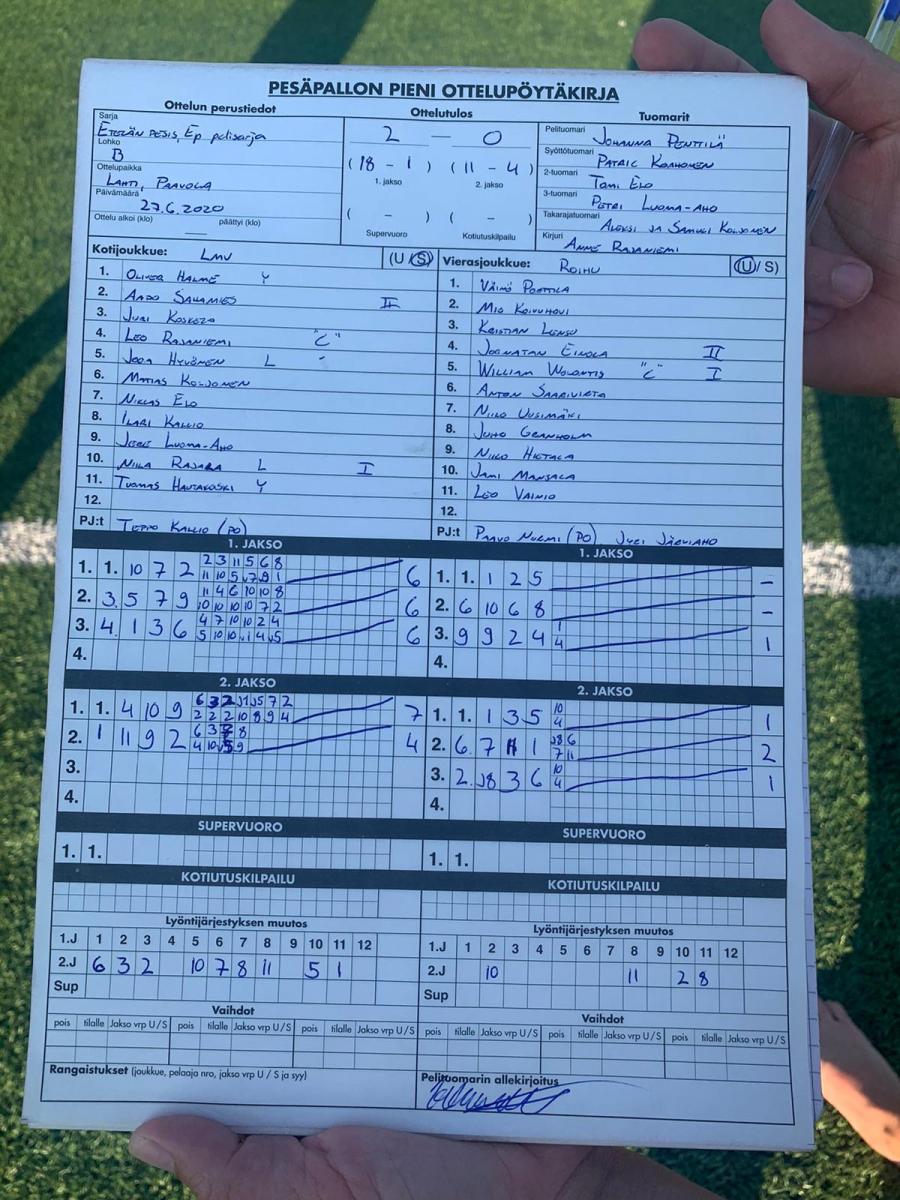 PESÄPALLON PIENI OTTELUPÖYTÄKIRJA
Ottelun perustiedot
Sarja
ETELÄN PESIS, EP pelisarja
Lohko
B
Ottelupaikka
LAHTI, PAAVOLA
Päivämäärä
27.6.2020
Ottelu alkoi (klo) päättyi (klo)
Ottelutulos
2 — 0
(18 - 1) (11 - 4)
1. jakso 2. jakso
( - ) ( - )
Supervuoro Kotiutuskilpailu
Tuomarit
Pelituomari JOHANNA PENTTILÄ
Syöttötuomari PATRIC KORHONEN
2-tuomari TOMI ELO
3-tuomari PETRI LUOMA-AHO
Takarajatuomari ALEKSI JA SAMULI KOLJONEN
Kirjuri ANNE RAJANIEMI
Kotijoukkue: LMV (U/S)
1. OLIVER HALME Y
2. AAPO SALAMIES II
3. JURI KOSKELA
4. LEO RAJANIEMI "C"
5. JOOA HYVÖNEN L
6. MATIAS KOLJONEN
7. NIKLAS ELO
8. ILARI KALLIO
9. LUOMA-AHO
10. NIILA RAJALA L I
11. TUOMAS HAUTAKOSKI Y
12.
PJ:t TEPPO KALLIO (PO)
Vierasjoukkue: ROIHU (U/S)
1. VÄINÖ PORTTILA
2. MIO KOIVUHOVI
3. KRISTIAN LENSU
4. JOONATAN EINOLA II
5. WILLIAM WOLONTIS "C" I
6. ANTON SAARIVIRTA
7. NIILO UUSIMÄKI
8. JUHO GRANHOLM
9. NIILO HIETALA
10. JAMI MANSALA
11. LEO VAINIO
12.
PJ:t PAAVO NURMI (PO) JYRI JÄRVIAHO
1. JAKSO
1. 1. 10 7 2 2 3 11 5 6 8
11 10 5 7 9 1 6
2. 3. 5 7 9 11 4 6 10 10 8
10 10 10 10 7 2 6
3. 4. 1 3 6 4 7 10 10 2 4
5 10 10 1 4 5 6
4.
1. JAKSO
1. 1. 1 2 5 –
2. 6 10 6 8 –
3. 9 9 2 4 1
4 1
4.
2. JAKSO
1. 1. 4 10 9 6 3 2 J1 J5 7 2
2 2 2 10 8 9 4 7
2. 1 11 9 2 6 3 8
4 10 5 9 4
3.
4.
2. JAKSO
1. 1. 1 3 5 10
4 1
2. 6. 7 11 1 J8 6
7 11 2
3. 2. J8 3 6 10
4 1
4.
SUPERVUORO
1. 1.
SUPERVUORO
1. 1.
KOTIUTUSKILPAILU
KOTIUTUSKILPAILU
Lyöntijärjestyksen muutos
1.J 1 2 3 4 5 6 7 8 9 10 11 12
2.J 6 3 2 10 7 8 11 5 1
Sup
Lyöntijärjestyksen muutos
1.J 1 2 3 4 5 6 7 8 9 10 11 12
2.J 10 11 2 8
Sup
Vaihdot
pois tilalle Jakso vrp U/S pois tilalle Jakso vrp U/S pois tilalle Jakso vrp U/S
Vaihdot
pois tilalle Jakso vrp U/S pois tilalle Jakso vrp U/S pois tilalle Jakso vrp U/S
Rangaistukset (joukkue, pelaaja nro, jakso vrp U / S ja syy)
Pelituomarin allekirjoitus